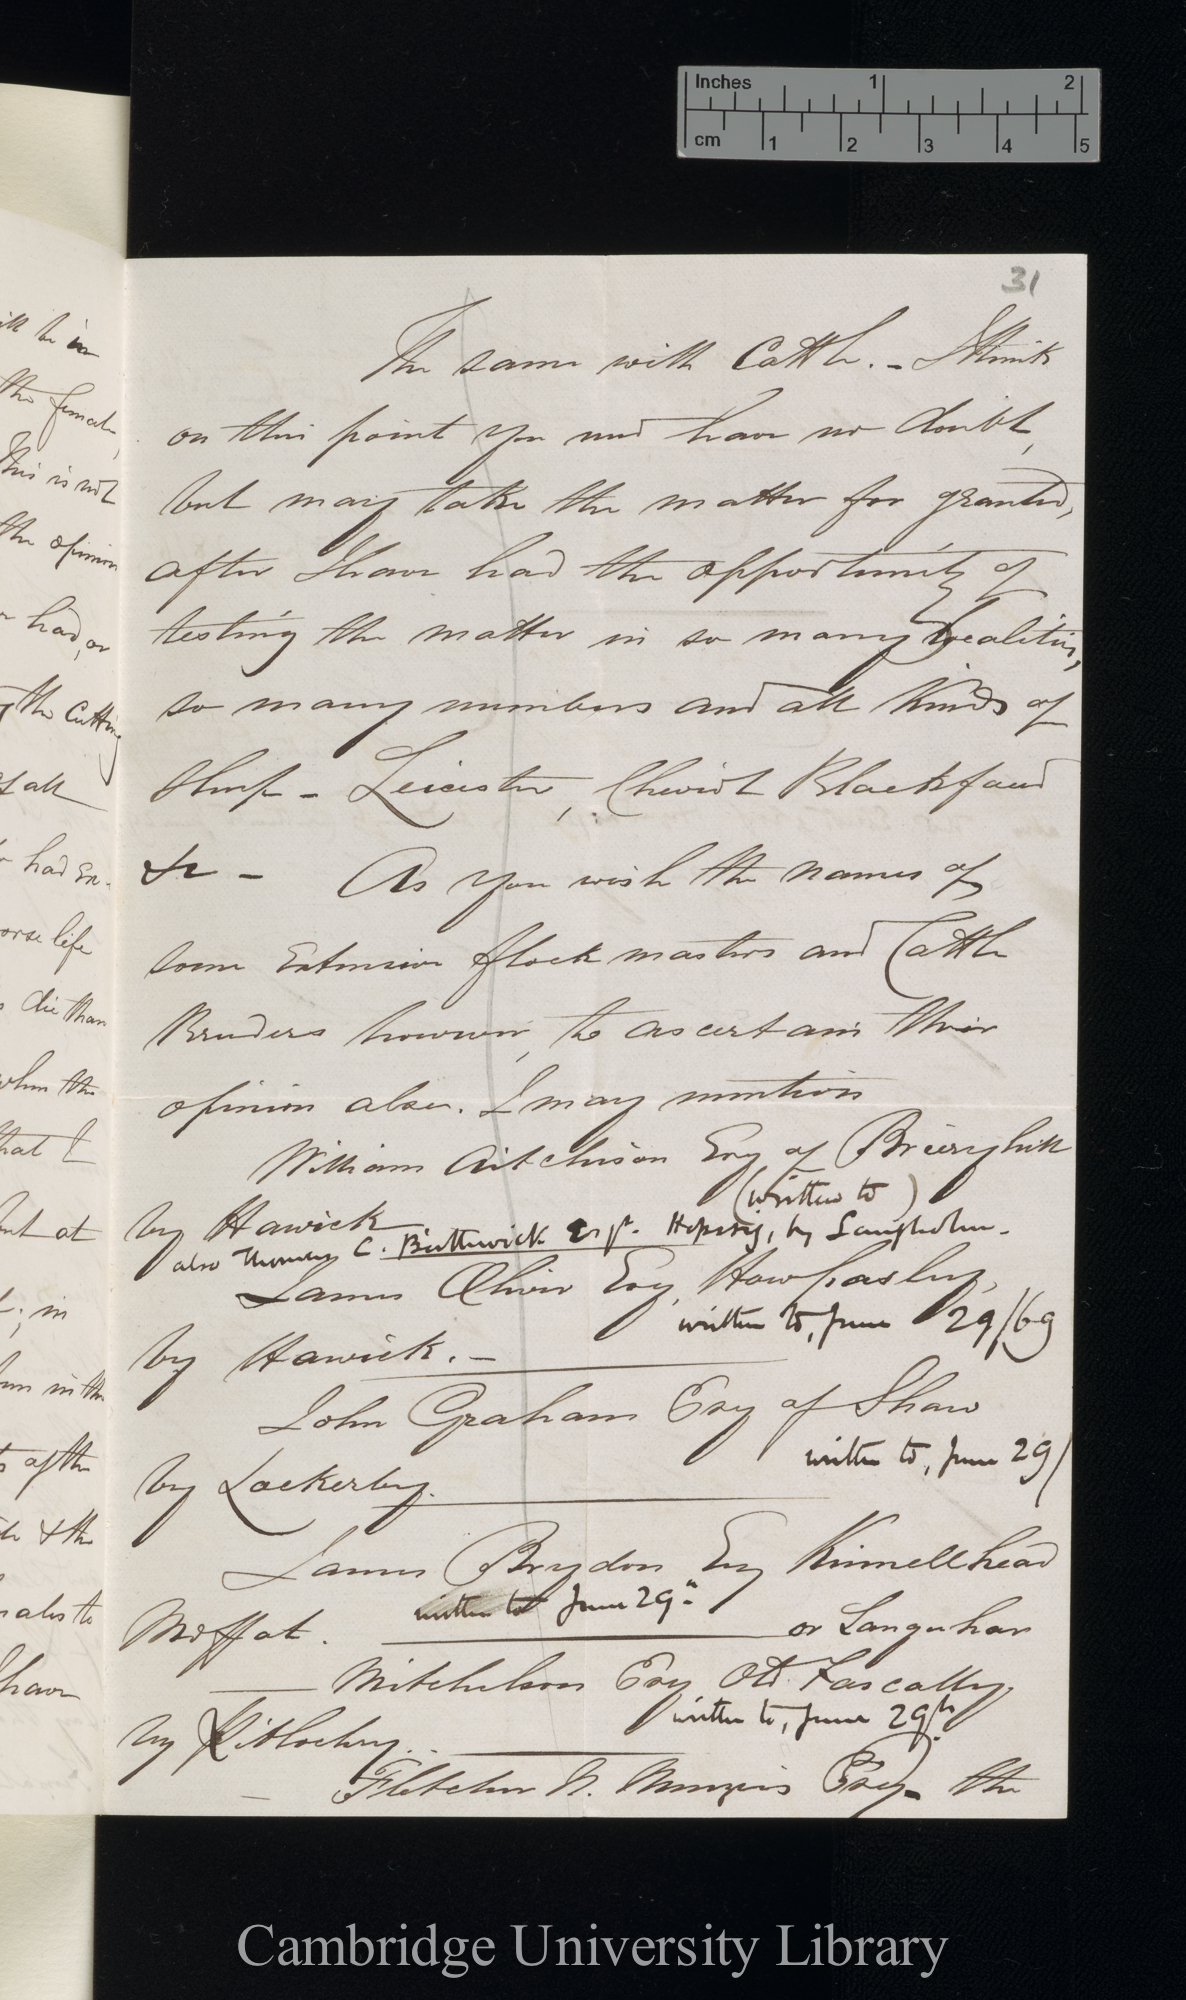 Inches 1 2
cm 1 2 3 4 5
31
The same with Cattle. - I think
on this point you need have no doubt,
but may take the matter for granted,
after I have had the opportunity of
testing the matter in so many localities,
so many numbers and all kinds of
Sheep - Leicester, Cheviot Blackfaced
&c - As you wish the names of
some Extensive flock masters and Cattle
Breeders however, to ascertain their
opinion also. I may mention
William Aitchison Esq of Brieryhill
(written to)
by Hawick
also Thomas C. Borthwick Esqr. Hopsrig, by Langholm.
James Oliver Esq, Howpasley,
written to, June 29/69
by Hawick. -
John Graham Esq of Shaw
written to, June 29/
by Lockerby.
James Brydon Esq Kinnellhead
written to June 29th
Moffat. or Sanquhar
Mitchelson Esq Old Fascally,
written to, June 29th
by Pitlochry.
- Fletcher N. Menzies Esq - the
ill be in
the female,
This is not
the opinion
had, or
the Cutting
of all
had en-
orse life
die than
when the
that I
but at
in
in the
after
& the
males to
have
Cambridge University Library